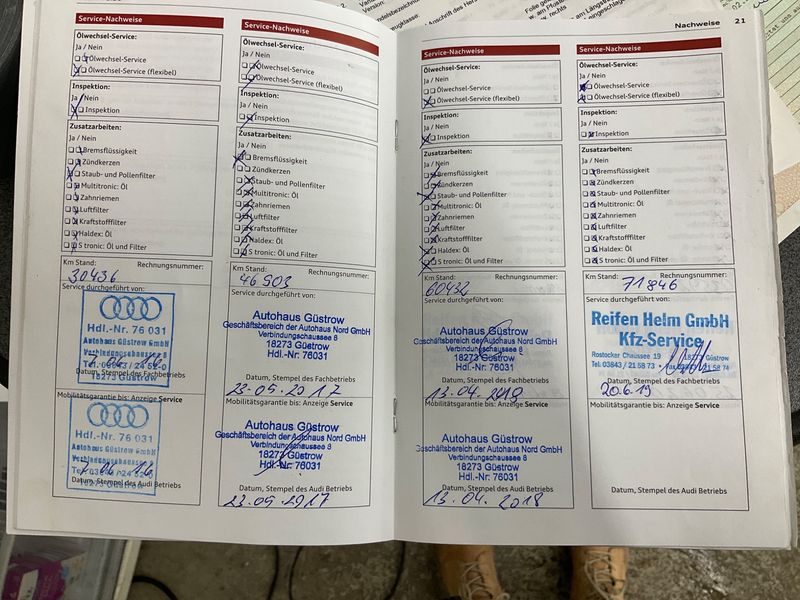 Nachweise 21
Service-Nachweise
Ölwechsel-Service:
Ja / Nein
Ölwechsel-Service
Ölwechsel-Service (flexibel)
Inspektion:
Ja / Nein
Inspektion
Zusatzarbeiten:
Ja / Nein
Bremsflüssigkeit
Zündkerzen
Staub- und Pollenfilter
Multitronic: Öl
Zahnriemen
Luftfilter
Kraftstofffilter
Haldex: Öl
S tronic: Öl und Filter
Km Stand: Rechnungsnummer:
30436
Service durchgeführt von:
Hdl.-Nr. 76 031
Autohaus Güstrow
Verbindungschaussee 8
Tel. 03843 / 24 52-0
18273 Güstrow
Datum, Stempel des Fachbetriebs
Mobilitätsgarantie bis: Anzeige Service
Hdl.-Nr. 76 031
Autohaus Güstrow
Verbindungschaussee 8
18273 Güstrow
Datum, Stempel des Audi Betriebs
Service-Nachweise
Ölwechsel-Service:
Ja / Nein
Ölwechsel-Service
Ölwechsel-Service (flexibel)
Inspektion:
Ja / Nein
Inspektion
Zusatzarbeiten:
Ja / Nein
Bremsflüssigkeit
Zündkerzen
Staub- und Pollenfilter
Multitronic: Öl
Zahnriemen
Luftfilter
Kraftstofffilter
Haldex: Öl
S tronic: Öl und Filter
Km Stand: Rechnungsnummer:
46903
Service durchgeführt von:
Autohaus Güstrow
Geschäftsbereich der Autohaus Nord GmbH
Verbindungschaussee 8
18273 Güstrow
Hdl.-Nr: 76031
Datum, Stempel des Fachbetriebs
23-05-2017
Mobilitätsgarantie bis: Anzeige Service
Autohaus Güstrow
Geschäftsbereich der Autohaus Nord GmbH
Verbindungschaussee 8
18273 Güstrow
Hdl.-Nr: 76031
Datum, Stempel des Audi Betriebs
23-05-2017
Service-Nachweise
Ölwechsel-Service:
Ja / Nein
Ölwechsel-Service
Ölwechsel-Service (flexibel)
Inspektion:
Ja / Nein
Inspektion
Zusatzarbeiten:
Ja / Nein
Bremsflüssigkeit
Zündkerzen
Staub- und Pollenfilter
Multitronic: Öl
Zahnriemen
Luftfilter
Kraftstofffilter
Haldex: Öl
S tronic: Öl und Filter
Km Stand: Rechnungsnummer:
60432
Service durchgeführt von:
Autohaus Güstrow
Geschäftsbereich der Autohaus Nord GmbH
Verbindungschaussee 8
18273 Güstrow
Hdl.-Nr: 76031
Datum, Stempel des Fachbetriebs
13.04.2018
Mobilitätsgarantie bis: Anzeige Service
Autohaus Güstrow
Geschäftsbereich der Autohaus Nord GmbH
Verbindungschaussee 8
18273 Güstrow
Hdl.-Nr: 76031
Datum, Stempel des Audi Betriebs
13.04.2018
Service-Nachweise
Ölwechsel-Service:
Ja / Nein
Ölwechsel-Service
Ölwechsel-Service (flexibel)
Inspektion:
Ja / Nein
Inspektion
Zusatzarbeiten:
Ja / Nein
Bremsflüssigkeit
Zündkerzen
Staub- und Pollenfilter
Multitronic: Öl
Zahnriemen
Luftfilter
Kraftstofffilter
Haldex: Öl
S tronic: Öl und Filter
Km Stand: Rechnungsnummer:
71846
Service durchgeführt von:
Reifen Helm GmbH
Kfz-Service
Rostocker Chaussee 19 18273 Güstrow
Tel. 03843 / 21 58 73 Fax 03843 / 21 58 74
Datum, Stempel des Fachbetriebs
20.6.19
Mobilitätsgarantie bis: Anzeige Service
Datum, Stempel des Audi Betriebs